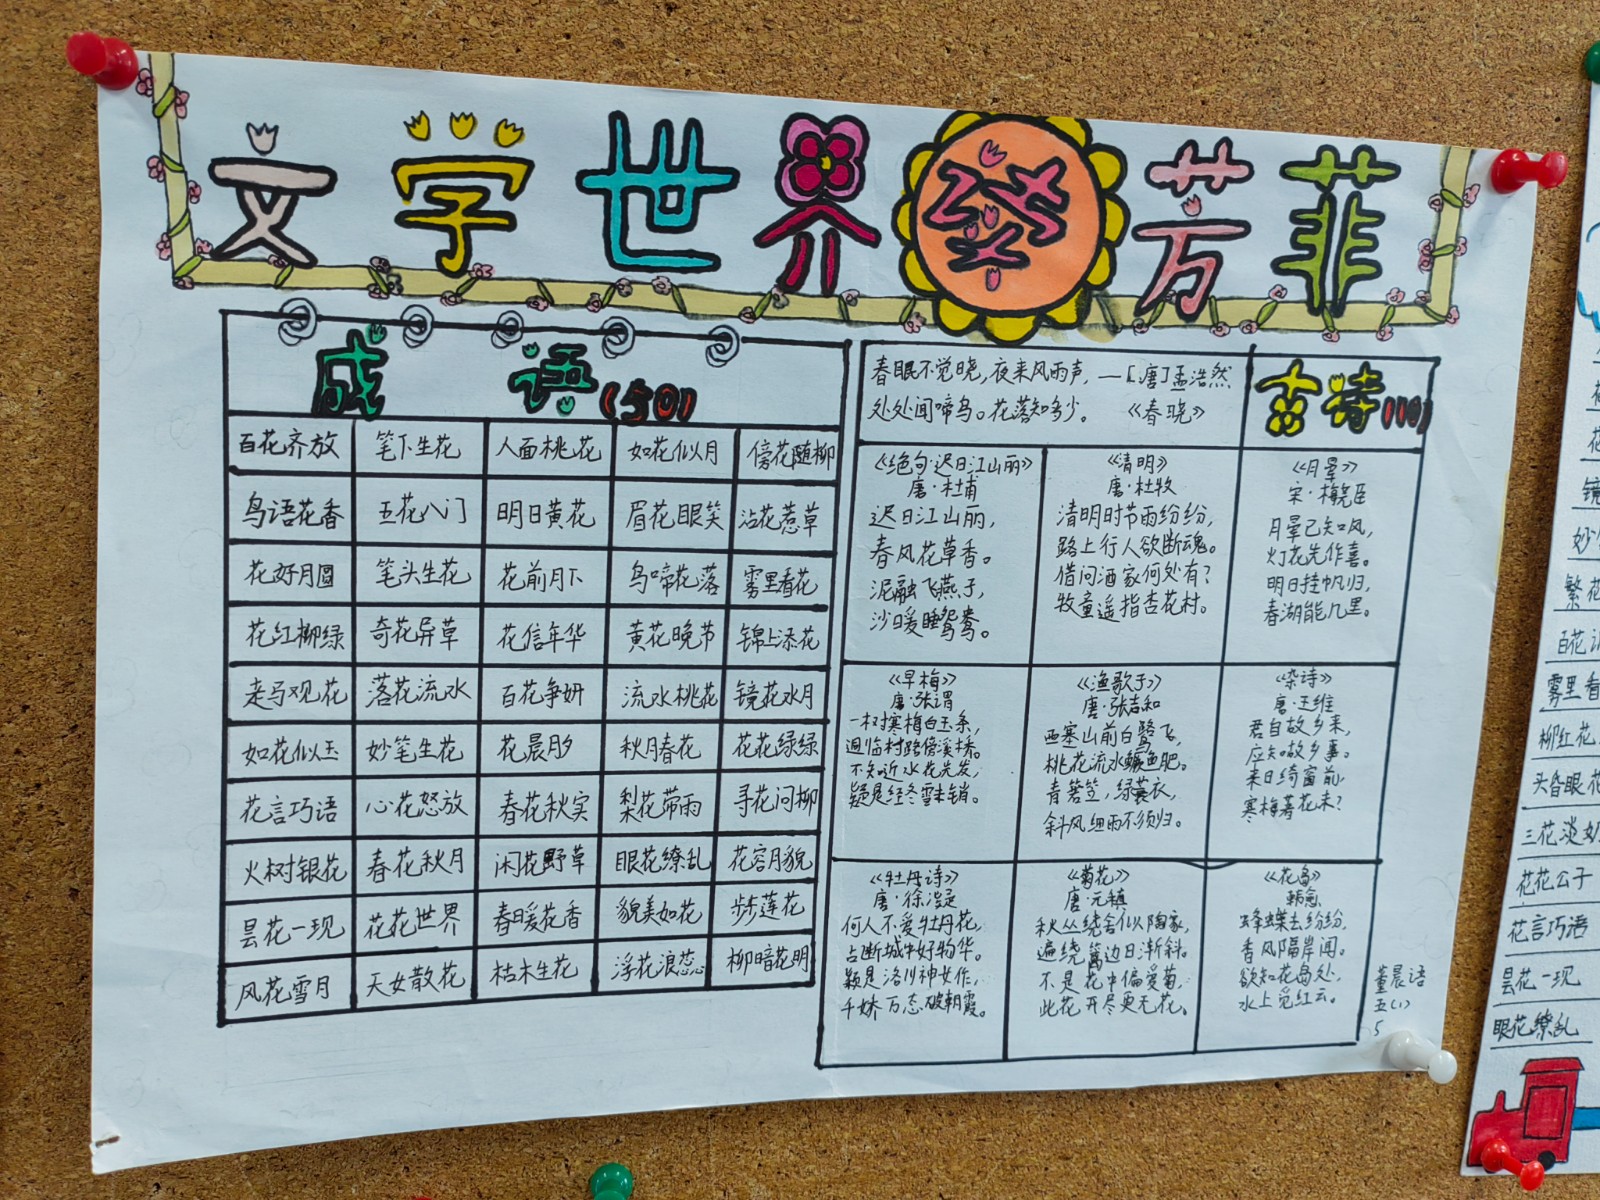 文学世界終芳菲
成语(50)
百花齐放 笔下生花 人面桃花 如花似月 傍花随柳
鸟语花香 五花八门 明日黄花 眉花眼笑 沾花惹草
花好月圆 笔头生花 花前月下 鸟啼花落 雾里看花
花红柳绿 奇花异草 花信年华 黄花晚节 锦上添花
走马观花 落花流水 百花争妍 流水桃花 镜花水月
如花似玉 妙笔生花 花晨月夕 秋月春花 花花绿绿
花言巧语 心花怒放 春花秋实 梨花带雨 寻花问柳
火树银花 春花秋月 闲花野草 眼花缭乱 花容月貌
昙花一现 花花世界 春暖花香 貌美如花 步步莲花
风花雪月 天女散花 枯木生花 浮花浪蕊 柳暗花明
春眠不觉晓,夜来风雨声,—[唐]孟浩然
处处闻啼鸟。花落知多少。 《春晓》
古诗(10)
《绝句·迟日江山丽》
唐·杜甫
迟日江山丽,
春风花草香。
泥融飞燕子,
沙暖睡鸳鸯。
《清明》
唐·杜牧
清明时节雨纷纷,
路上行人欲断魂。
借问酒家何处有?
牧童遥指杏花村。
《月晕》
宋·梅尧臣
月晕已知风,
灯花先作喜。
明日挂帆归,
春湖能几里。
《早梅》
唐·张谓
一树寒梅白玉条,
迥临村路傍溪桥。
不知近水花先发,
疑是经冬雪未销。
《渔歌子》
唐·张志和
西塞山前白鹭飞,
桃花流水鳜鱼肥。
青箬笠,绿蓑衣,
斜风细雨不须归。
《杂诗》
唐·王维
君自故乡来,
应知故乡事。
来日绮窗前,
寒梅著花未?
《牡丹诗》
唐·徐凝
何人不爱牡丹花,
占断城中好物华。
疑是洛川神女作,
千娇万态破朝霞。
《菊花》
唐·元稹
秋丛绕舍似陶家,
遍绕篱边日渐斜。
不是花中偏爱菊,
此花开尽更无花。
《花岛》
韩愈
蜂蝶去纷纷,
香风隔岸闻。
欲知花岛处,
水上觅红云。
董晨语
五(1)
5
镜
妙
繁花
百花
雾里看
柳红花
头昏眼花
三花淡奶
花花公子
花言巧语
昙花一现
眼花缭乱